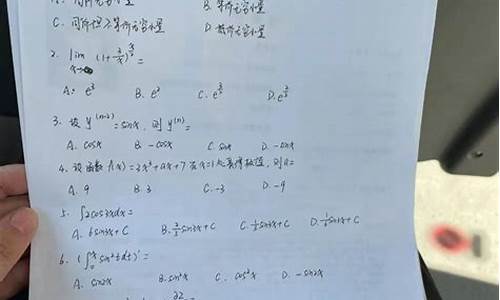 A. 同阶无穷小量 B. 等阶无穷小量
C. 同阶但不等价无穷小量 D. 高阶无穷小量
2. lim (1+
A. e³ B. e² C. e D. e
3. 设 y⁽ⁿ⁻²⁾ = sinx, 则 y⁽ⁿ⁾ =
A. cosx B. -cosx C. sinx D. -sinx
4. 设函数 f(x) = 2x³+ax+7 在 x=1 处取得极值, 则 a=
A. 9 B. 3 C. -3 D. -9
5. ∫2cos3xdx =
A. 6sin3x+C B. 2/3 sin3x+C C. 1/3 sin3x+C D. 1/6 sin3x+C
6. (∫₀ˣ sin²t dt)' =
A. sin2x B. sin²x C. cos²x D. -sin2x